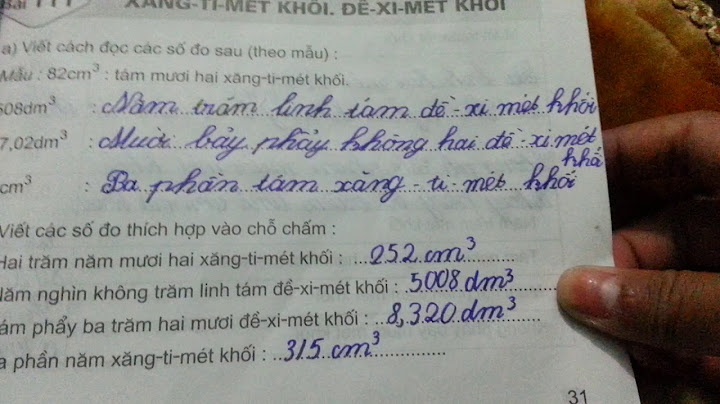 Bài 111 XĂNG-TI-MÉT KHỐI. ĐỀ-XI-MÉT KHỐI
a) Viết cách đọc các số đo sau (theo mẫu) :
Mẫu : 82cm³ : tám mươi hai xăng-ti-mét khối.
508dm³ : Năm trăm linh tám đề-xi mét khối
7,02dm³ : Mười bảy phẩy không hai đề-xi mét khố
cm³ : Ba phần tám xăng-ti-mét khối
Viết các số đo thích hợp vào chỗ chấm :
Hai trăm năm mươi hai xăng-ti-mét khối : 252 cm³
Năm nghìn không trăm linh tám đề-xi-mét khối : 5008 dm³
ám phẩy ba trăm hai mươi đề-xi-mét khối : 8,320 dm³
a phần năm xăng-ti-mét khối : 315 cm³
31